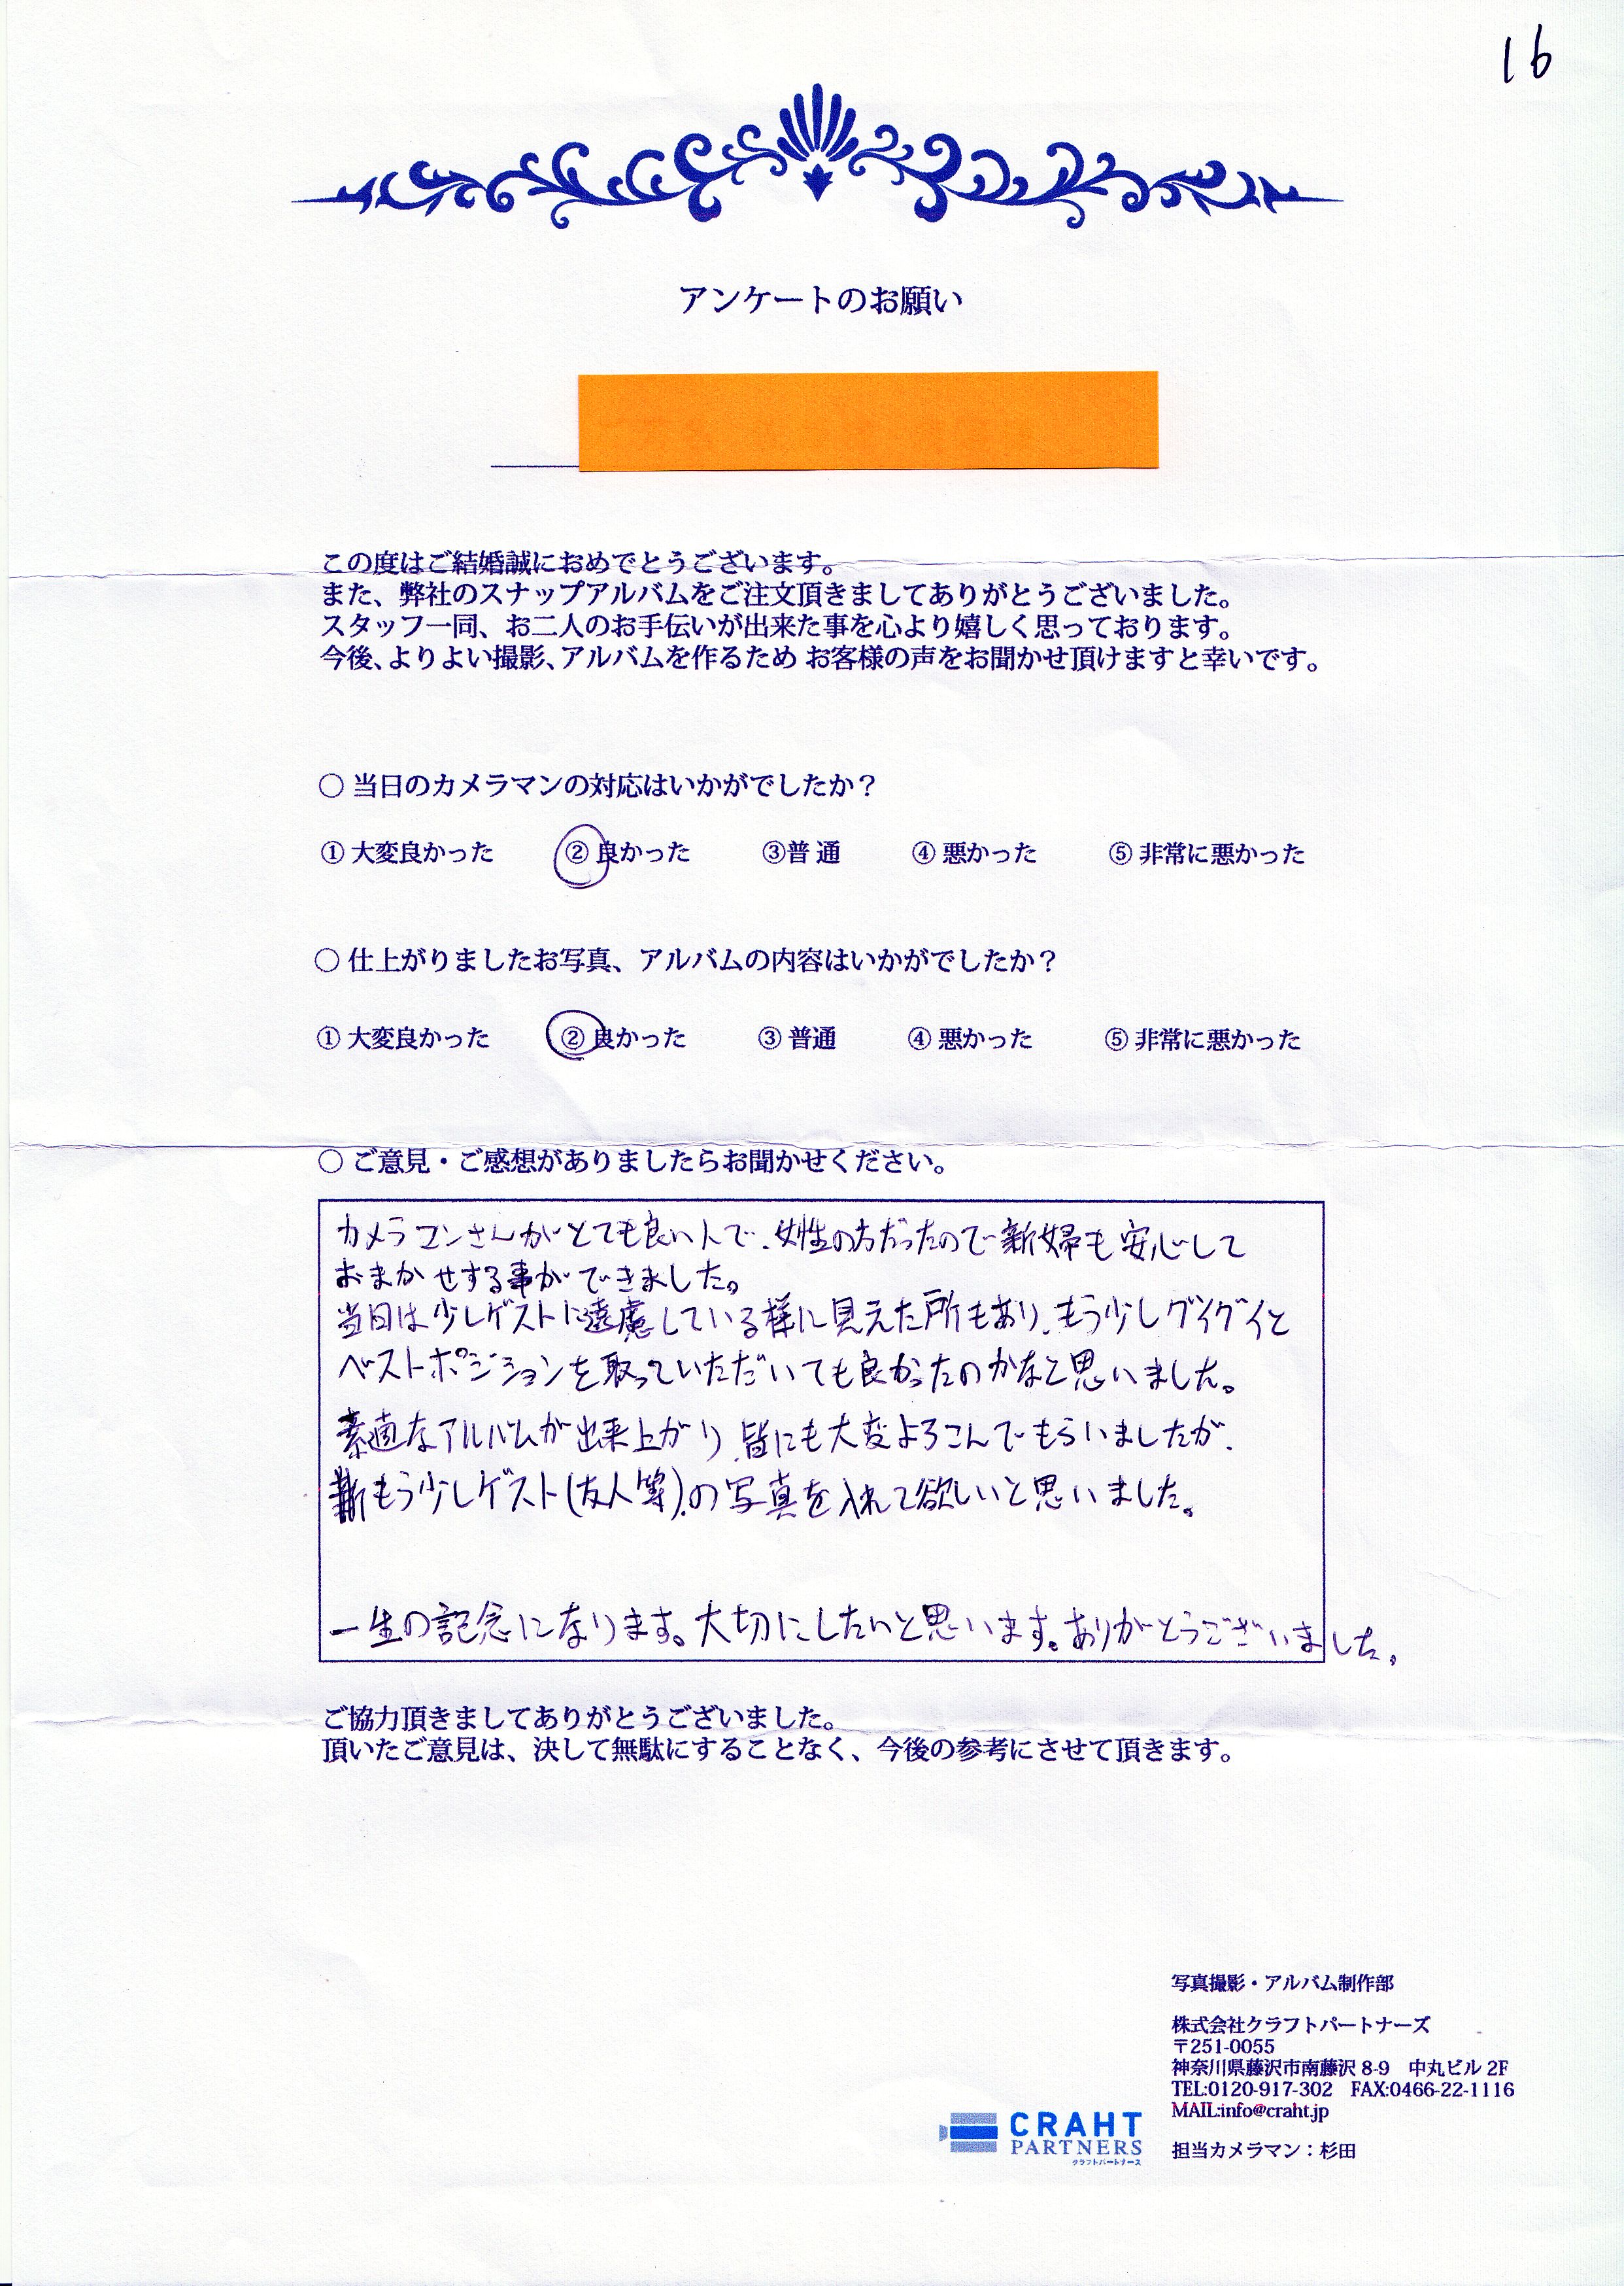 16
アンケートのお願い
この度はご結婚誠におめでとうございます。
また、弊社のスナップアルバムをご注文頂きましてありがとうございました。
スタッフ一同、お二人のお手伝いが出来た事を心より嬉しく思っております。
今後、よりよい撮影、アルバムを作るため お客様の声をお聞かせ頂けますと幸いです。
○ 当日のカメラマンの対応はいかがでしたか？
① 大変良かった ② 良かった ③普 通 ④ 悪かった ⑤ 非常に悪かった
○ 仕上がりましたお写真、アルバムの内容はいかがでしたか？
① 大変良かった ② 良かった ③ 普通 ④ 悪かった ⑤ 非常に悪かった
○ ご意見・ご感想がありましたらお聞かせください。
カメラマンさんがとても良い人で、女性の方だったので新婦も安心して
おまかせする事ができました。
当日は少しゲストに遠慮している様に見えた所もあり、もう少しグイグイと
ベストポジションを取っていただいても良かったのかなと思いました。
素適なアルバムが出来上がり、皆にも大変よろこんでもらいましたが、
もう少しゲスト(友人等)の写真を入れて欲しいと思いました。
一生の記念になります。大切にしたいと思います。ありがとうございました。
ご協力頂きましてありがとうございました。
頂いたご意見は、決して無駄にすることなく、今後の参考にさせて頂きます。
写真撮影・アルバム制作部
株式会社クラフトパートナーズ
〒251-0055
神奈川県藤沢市南藤沢 8-9 中丸ビル 2F
TEL:0120-917-302 FAX:0466-22-1116
MAIL:info@craht.jp
担当カメラマン：杉田
CRAHT
PARTNERS
クラフトパートナーズ